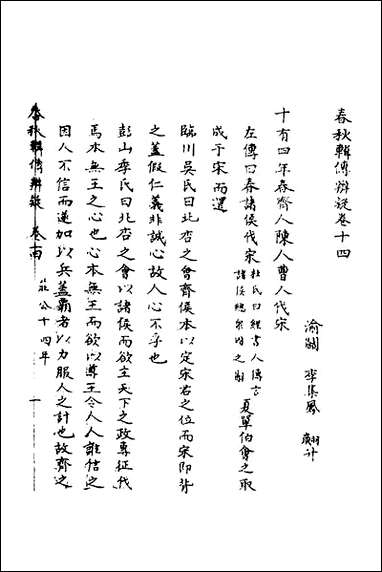 春秋輯傳辨疑卷十四
渝關 李集鳳 翽升
十有四年春齊人陳人曹人伐宋
左傳曰春諸侯伐宋杜氏曰經書人傳言諸侯總衆國之辭夏單伯會之取
成于宋而還
臨川吳氏曰北杏之會齊侯本以定宋君之位而宋卽背
之蓋假仁義非誠心故人心不孚也
彭山季氏曰北杏之會以諸侯而欲主天下之政專征伐
焉本無王之心也心本無王而欲以尊王令人人誰信之
因人不信而遂加以兵蓋霸者以力服人之計也故齊之
春秋輯傳辨疑 卷十四 莊公十四年 一